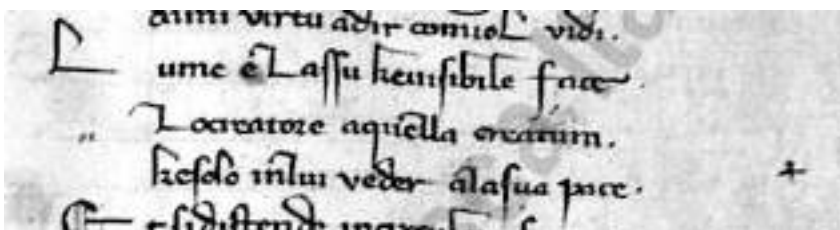 dami virtu adir comiol vidi.
L ume è Lassu keuisibile face.
Locreatore aquella creatura.
kesolo inlui veder alasua pace.
E esidistende